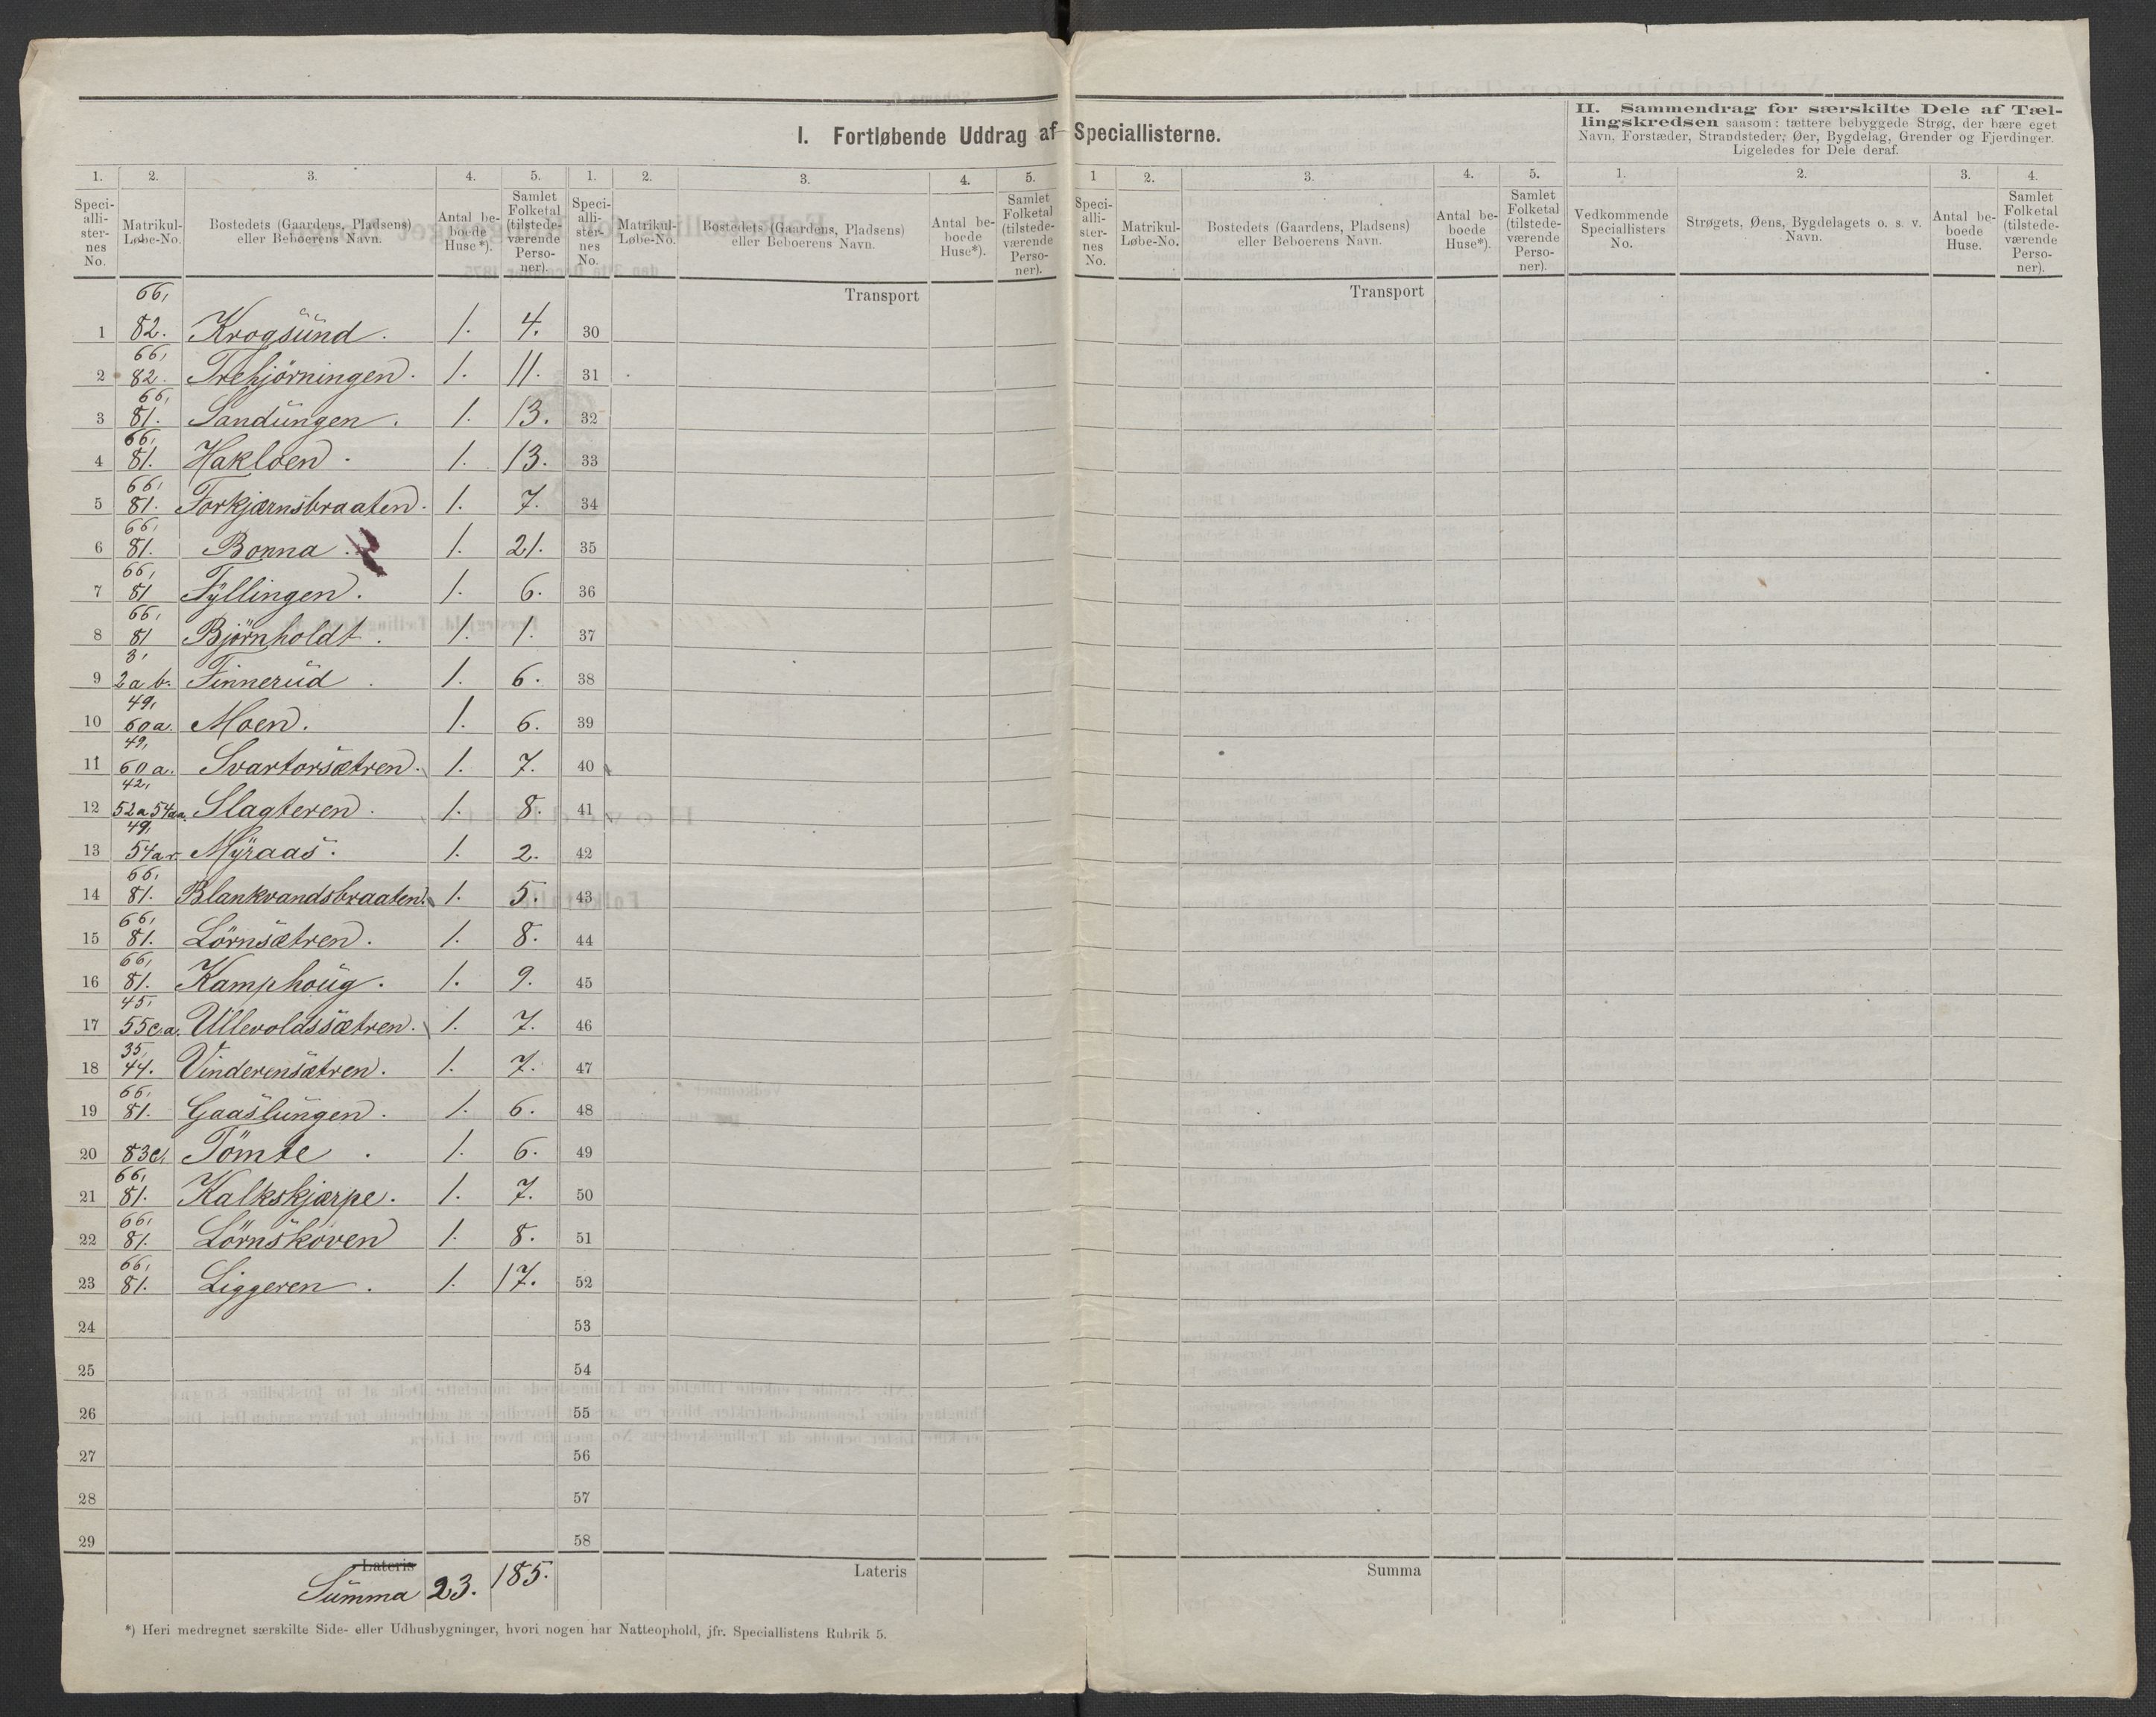 I. Fortløbende Uddrag af Speciallisterne.
II. Sammendrag for særskilte Dele af Tæl-
lingskredsen saasom: tættere bebyggede Strøg, der bære eget
Navn, Forstæder, Strandsteder, Øer, Bygdelag, Grender og Fjerdinger.
Ligeledes for Dele deraf.
1. 2. 3. 4. 5. 1. 2. 3. 4. 5. 1 2. 3. 4. 5. 1. 2. 3. 4.
Speci-alli-ster-nes No. Matrikul-Løbe-No. Bostedets (Gaardens, Pladsens) eller Beboerens Navn. Antal be-boede Huse*). Samlet Folketal (tilstede-værende Perso-ner).
Speci-alli-ster-nes No. Matrikul-Løbe-No. Bostedets (Gaardens, Pladsens) eller Beboerens Navn. Antal be-boede Huse*). Samlet Folketal (tilstede-værende Perso-ner).
Speci-alli-ster-nes No. Matrikul-Løbe-No. Bostedets (Gaardens, Pladsens) eller Beboerens Navn. Antal be-boede Huse*). Samlet Folketal (tilstede-værende Perso-ner).
Vedkommende Speciallisters No. Strøgets, Øens, Bygdelagets o. s. v. Navn. Antal be-boede Huse. Samlet Folketal (tilstede-værende Perso-ner).
Transport Transport
66,
1 82. Krogsund. 1. 4. 30
66,
2 82. Trehjörningen. 1. 11. 31
66,
3 81. Sandungen. 1. 13. 32
66,
4 81. Hakloen. 1. 13. 33
66,
5 81. Forkjærnsbraaten. 1. 7. 34
66,
6 81. Bonna. 1. 21. 35
66,
7 81 Fyllingen. 1. 6. 36
66,
8 81 Björnholdt. 1. 1. 37
3,
9 2a b. Finnerud 1. 6. 38
49,
10 60a. Moen. 1. 6. 39
49,
11 60a. Svartorsætren. 1. 7. 40
42,
12 52a 54aa. Slagteren. 1. 8. 41
49,
13 54ar Myraas. 1. 2. 42
66,
14 81. Blankvandsbraaten. 1. 5. 43
66,
15 81. Lörnsætren. 1. 8. 44
66,
16 81. Kamphoug. 1. 9. 45
45,
17 55ca. Ullevoldssætren. 1. 7. 46
35,
18 44. Vinderensætren. 1. 7. 47
66,
19 81. Gaaslungen. 1. 6. 48
20 83c, Tömte. 1. 6. 49
66,
21 81. Kalkskjærpe. 1. 7. 50
66,
22 81. Lörnskoven 1. 8. 51
66,
23 81. Liggeren. 1. 17. 52
24 53
25 54
26 55
27 56
28 57
29 58
Lateris Lateris Summa
Summa 23. 185.
*) Heri medregnet særskilte Side- eller Udhusbygninger, hvori nogen har Natteophold, jfr. Speciallistens Rubrik 5.